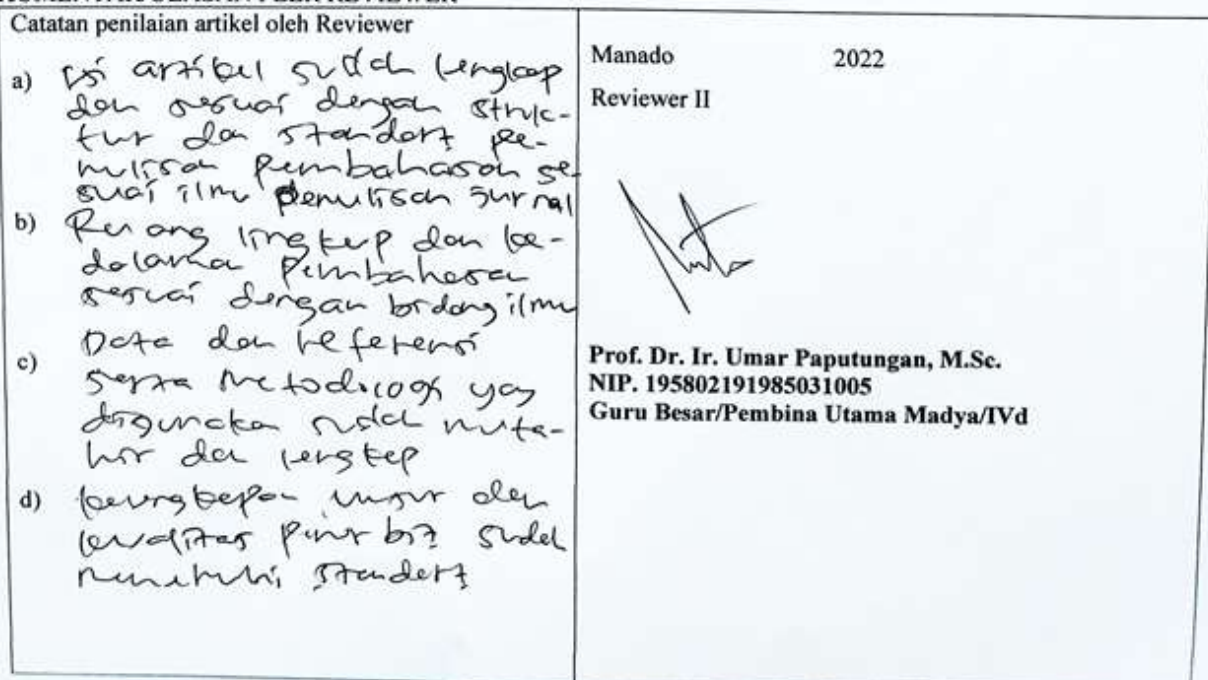 Catatan penilaian artikel oleh Reviewer
a) Isi artikel sudah lengkap
dan sesuai dengan struk-
tur dan standart pe-
nulisan pembahasan se
suai ilmu penulisan Jurnal
b) Ruang lingkup dan ke-
dalaman Pembahasan
sesuai dengan bidang ilmu
c) Data dan referensi
serta Metodologi yang
digunakan sudah muta-
hir dan lengkap
d) kelengkapan unsur dan
kualitas penerbit sudah
memenuhi standart
Manado 2022
Reviewer II
Prof. Dr. Ir. Umar Paputungan, M.Sc.
NIP. 195802191985031005
Guru Besar/Pembina Utama Madya/IVd